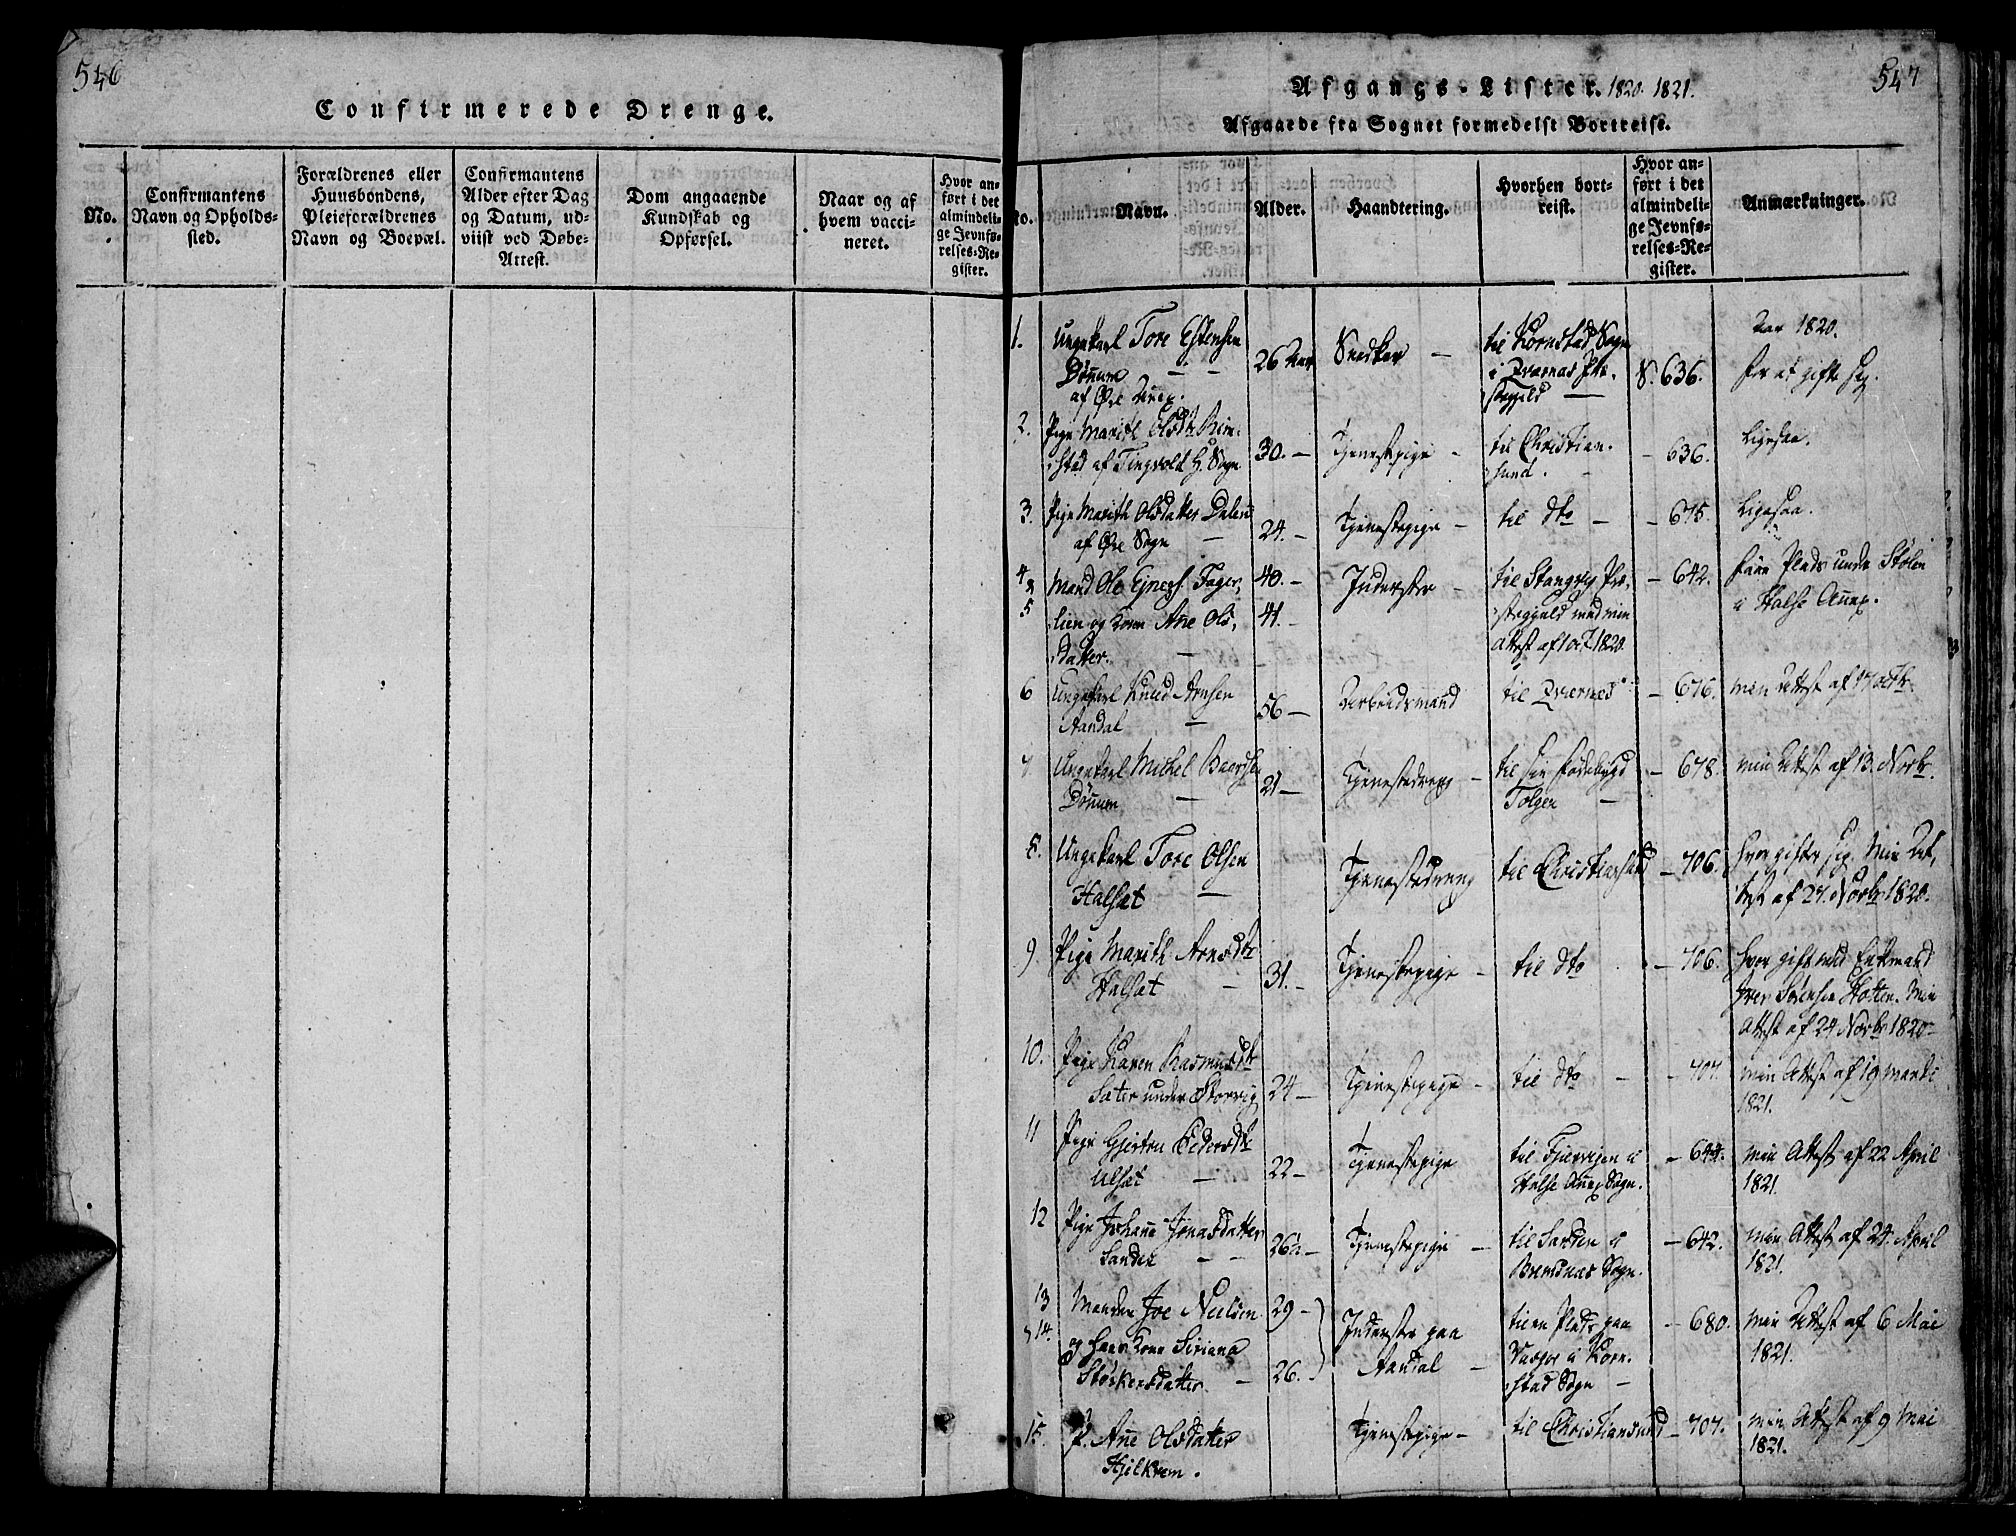 546
Confirmerede Drenge.
No.
Confirmantens
Navn og Opholds-
sted.
Forældrenes eller
Huusbondens,
Pleieforældrenes
Navn og Boepæl.
Confirmantens
Alder efter Dag
og Datum, ud-
viist ved Døbe-
Attest.
Dom angaaende
Kundskab og
Opførsel.
Naar og af
hvem vacci-
neret.
Hvor an-
ført i det
almindeli-
ge Jevnfø-
relses-Re-
gister.
547
Afgangs-Lister. 1820. 1821.
Afgaaede fra Sognet formedelst Bortreise.
No.
Navn.
Alder.
Haandtering.
Hvorhen bort-
reist.
Hvor an-
ført i det
almindeli-
ge Jevnfø-
relses-Re-
gister.
Anmærkninger.
1.
Ungekarl Tore Estensen
Dönnum
af Øre Annex.
26 Aar
Snedker
til Kornstad Sogn
i Qværnæs Præ-
stegjeld
N. 636.
Aar 1820.
for at gifte sig.
2.
Pige Marith Olsdtr Rim-
stad af Tingvold H. Sogn
30.
Tjenestepige
til Christian-
sund.
636.
Ligesaa.
3.
Pige Marith Olsdatter Dalen
af Øre Sogn
24.
Tjenestepige
til dto
675.
Ligesaa.
4
5
Mand Ole Ejners. Fager-
lien og Kone Ane Ols-
datter.
40.
41.
Inderster
til Stangvig Præ-
stegjeld med min
Attest af 1 oct 1820.
642.
paa Plads under Stølen
i Halse Annex.
6
Ungekarl Knud Arnsen
Aandal
56
Arbeidsmand
til Qværnes
676.
min Attest af 17 octbr.
7
Ungekarl Michel Baarsen
Dönnum
21
Tjenestedreng
til sin Fødebygd
Tolgen
678.
min Attest af 13. Novbr.
8.
Ungekarl Tore Olsen
Halsæt
Tjenestedreng
til Christiansund
706.
hvor gifter sig. Min At-
test af 24. Novbr 1820.
9.
Pige Marith Arnsdtr
Halsæt
31.
Tjenestepige
til dto
706.
hvor gift med Enkemand
Iver Sörensen Hotten. Min
Attest af 24 Novbr 1820
10.
Pige Karen Rasmusdtr
Sæter under Storvig
24
Tjenestepige
til dto
707.
min Attest af 19 Marti
1821.
11
Pige Gjertru Pedersdtr
Ulsæt
22
Tjenestepige
til Fjærvigen i
Halse Annex Sogn.
644.
min Attest af 22 April
1821.
12
Pige Johane Jonasdatter
Sandet
26
Tjenestepige
til Sanden i
Bremsnæs Sogn.
642.
min Attest af 24. April
1821.
13
14.
Manden Joe Nielsen
og hans Kone Siriana
Størkersdatter
29
26.
Inderster paa
Aandal
til en Plads paa
i Korn-
stad Sogn
680.
min Attest af 6 Mai
1821.
15.
P. Ane Olsdatter
Hjelkrem.
Tjenestepige
til Christiansund
707.
min Attest af 9 Mai
1821.